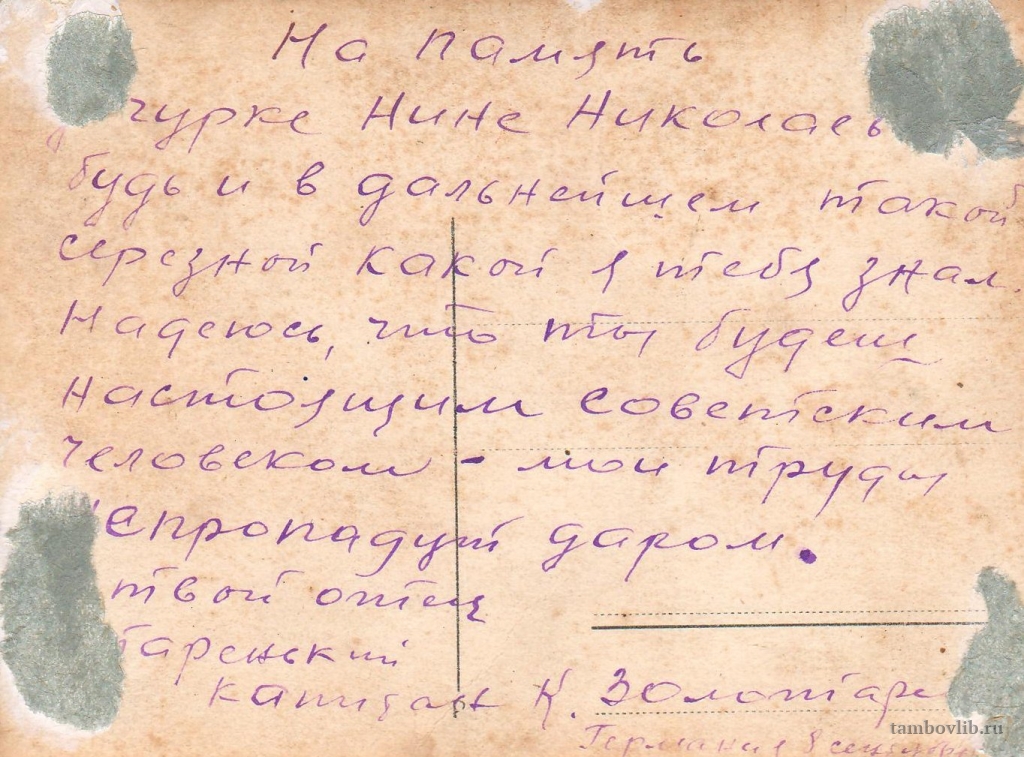 На память
чурке Нине Николаев
будь и в дальнейшем такой
серезной какой я тебя знал.
Надеюсь, что ты будеш
настоящим советским
человеком - мои труды
непропадут даром.
твой отец
таренький
капитан К. Золотаре
Германия 8
tambovlib.ru